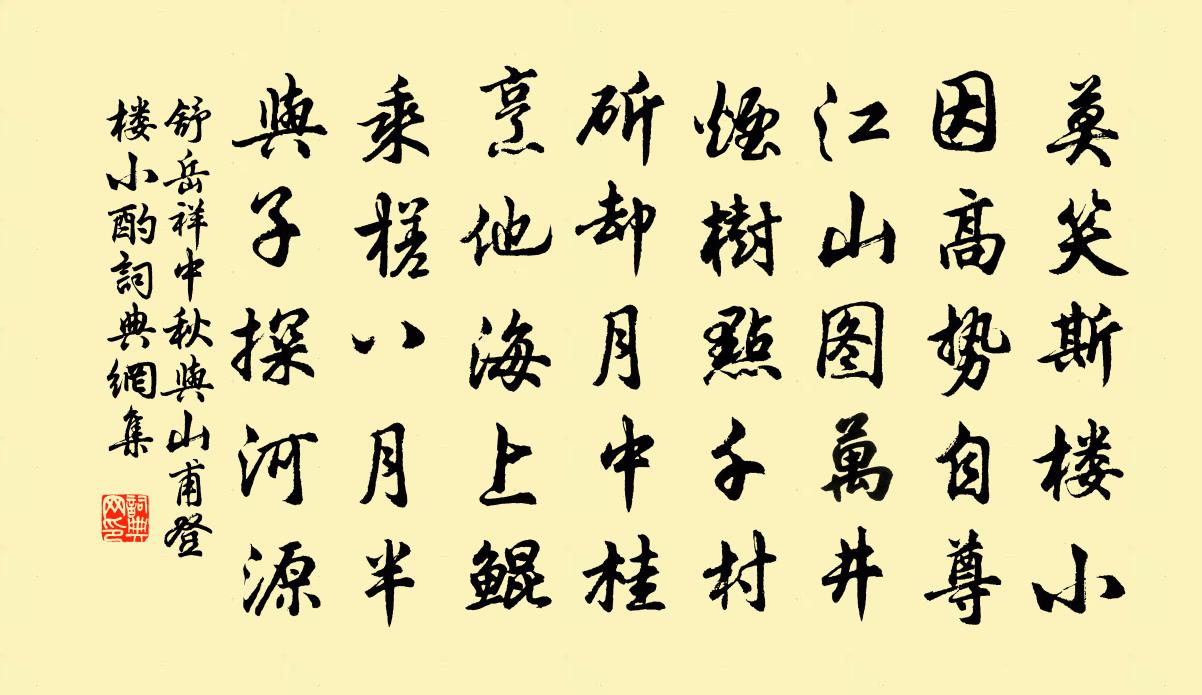 莫笑斯楼小
因高势自尊
江山图萬井
煙樹點千村
斫却月中桂
烹他海上鯤
乘槎八月半
與子探河源
舒岳祥中秋與山甫登
楼小酌詞典網集
詞典网印